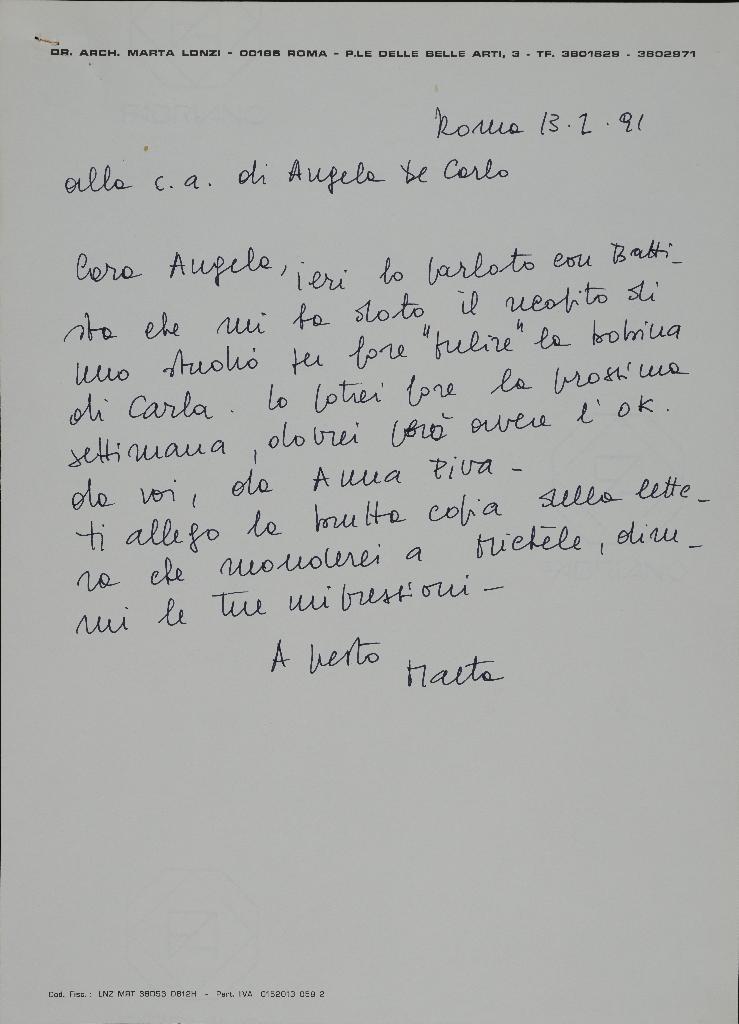 DR. ARCH. MARTA LONZI - 00196 ROMA - P.LE DELLE BELLE ARTI, 3 - TF. 3601829 - 3602971
Roma 13.2.91
alla c.a. di Angela De Carlo
Cara Angela, ieri ho parlato con Batti_
sta che mi ha dato il recapito di
uno studio per fare "pulire" la bobina
di Carla. Lo potrei fare la prossima
settimana, dovrei però avere l'OK.
da voi, da Anna Piva -
ti allego la brutta copia della lette_
ra che manderei a Michèle, dim_
mi le tue impressioni -
A presto
Marta
Cod. Fisc.: LNZ MRT 38D53 D612H - Part. IVA 0152013 058 2